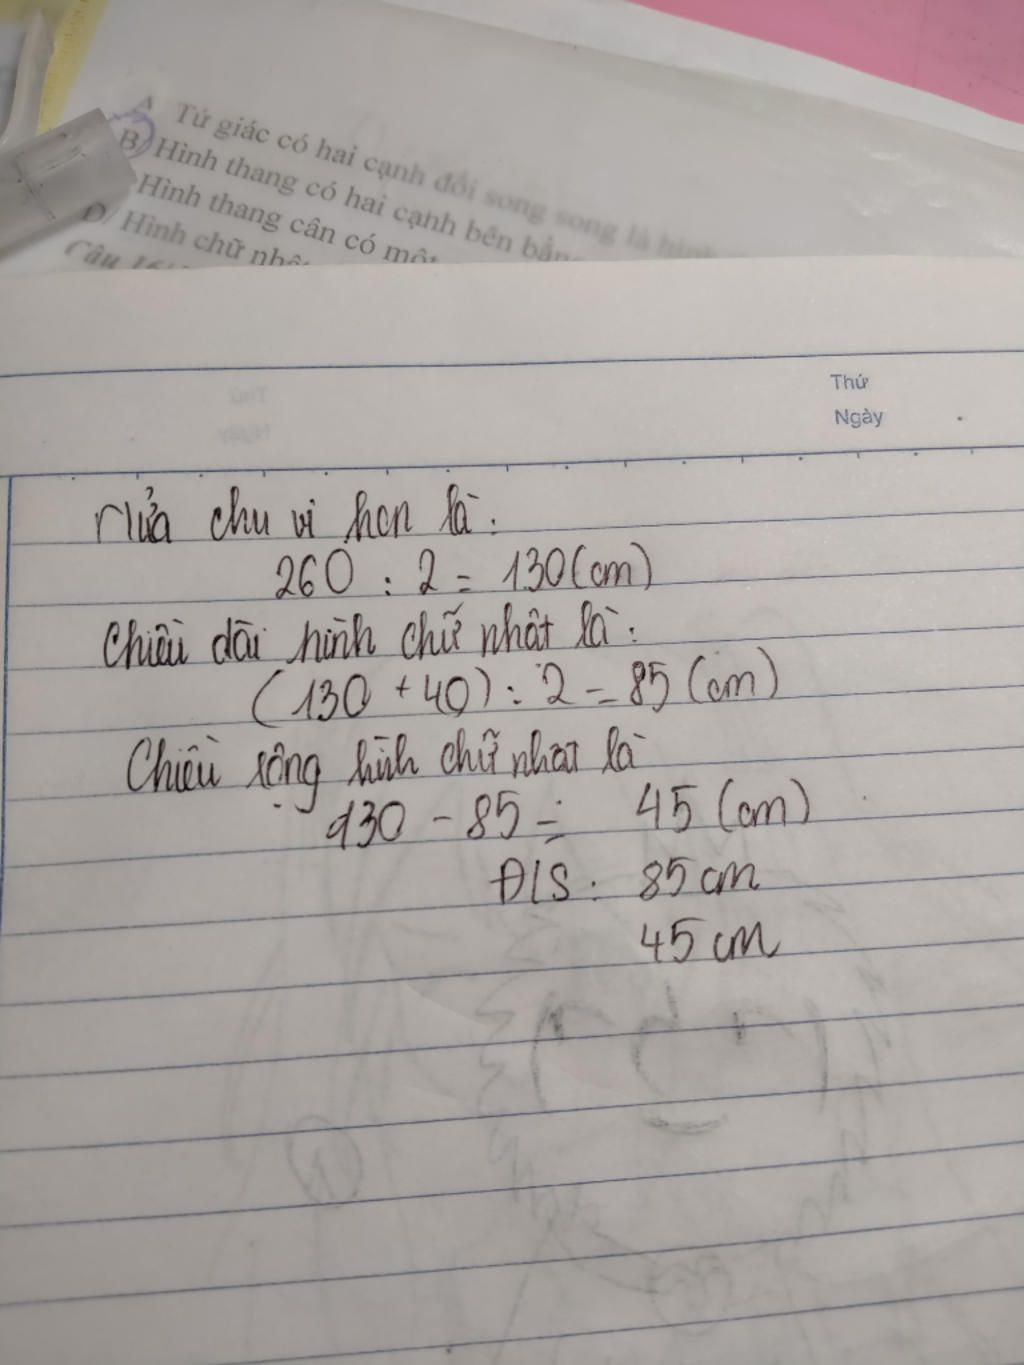 A Tứ giác có hai cạnh đối song song là hình
B/ Hình thang có hai cạnh bên bằng
Hình thang cân có một
D/ Hình chữ nhật
Câu 16
Thứ
Ngày
Nửa chu vi hcn là:
260 : 2 = 130 (cm)
Chiều dài hình chữ nhật là:
(130 + 40) : 2 = 85 (cm)
Chiều rộng hình chữ nhật là
130 - 85 = 45 (cm)
Đ/S: 85 cm
45 cm